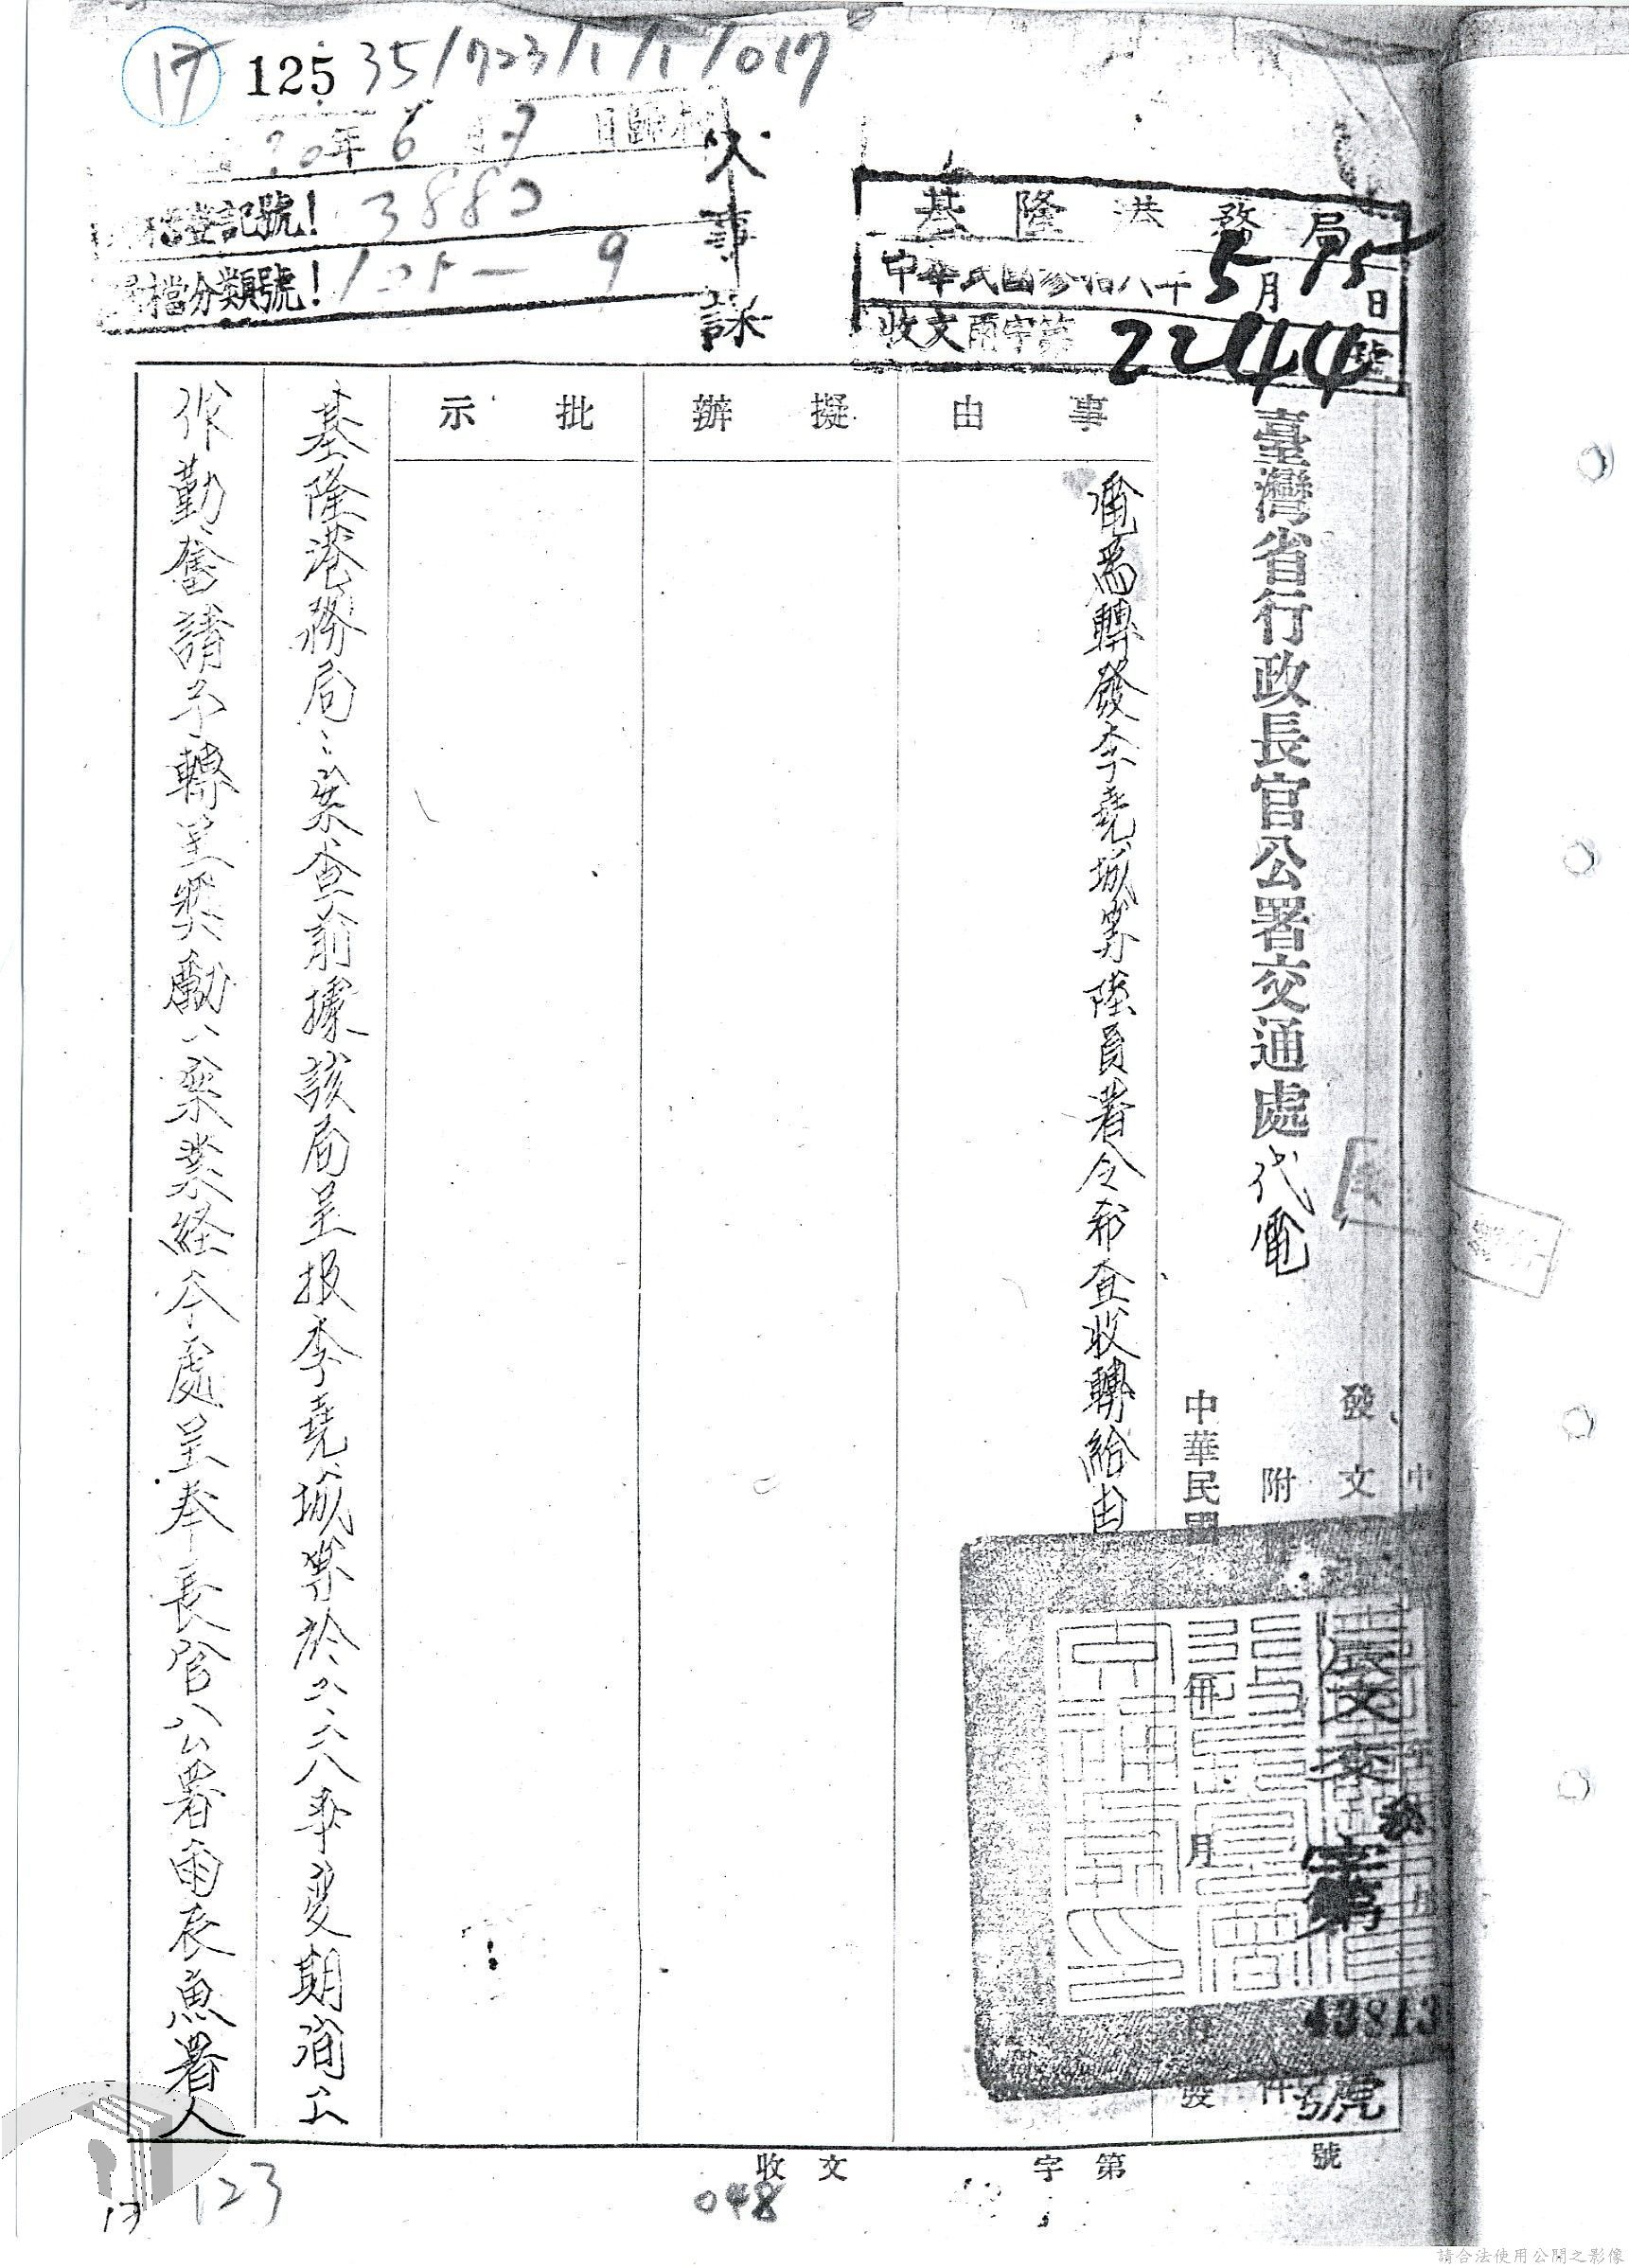 17 125 35/723/1/1/017
年6月7日歸檔
檔登記號! 3880
檔分類號!
人事課
基隆港務局
中華民國參拾六年5月15日
收文雨字第2244號
臺灣省行政長官公署交通處代電
發文
附件
中華民國 年 月 日發
辰文交
字第
43813
號
事由
擬辦
批示
電為轉發李堯城等陸員署令希查收轉給由
基隆港務局:案查前據該局呈报李堯城等於二、二八事变期间工
作勤奮請予轉呈奬勵一案業經本處呈奉長官公署卅六辰魚署人
收文 字第 號
123
048
17
請合法使用公開之影像